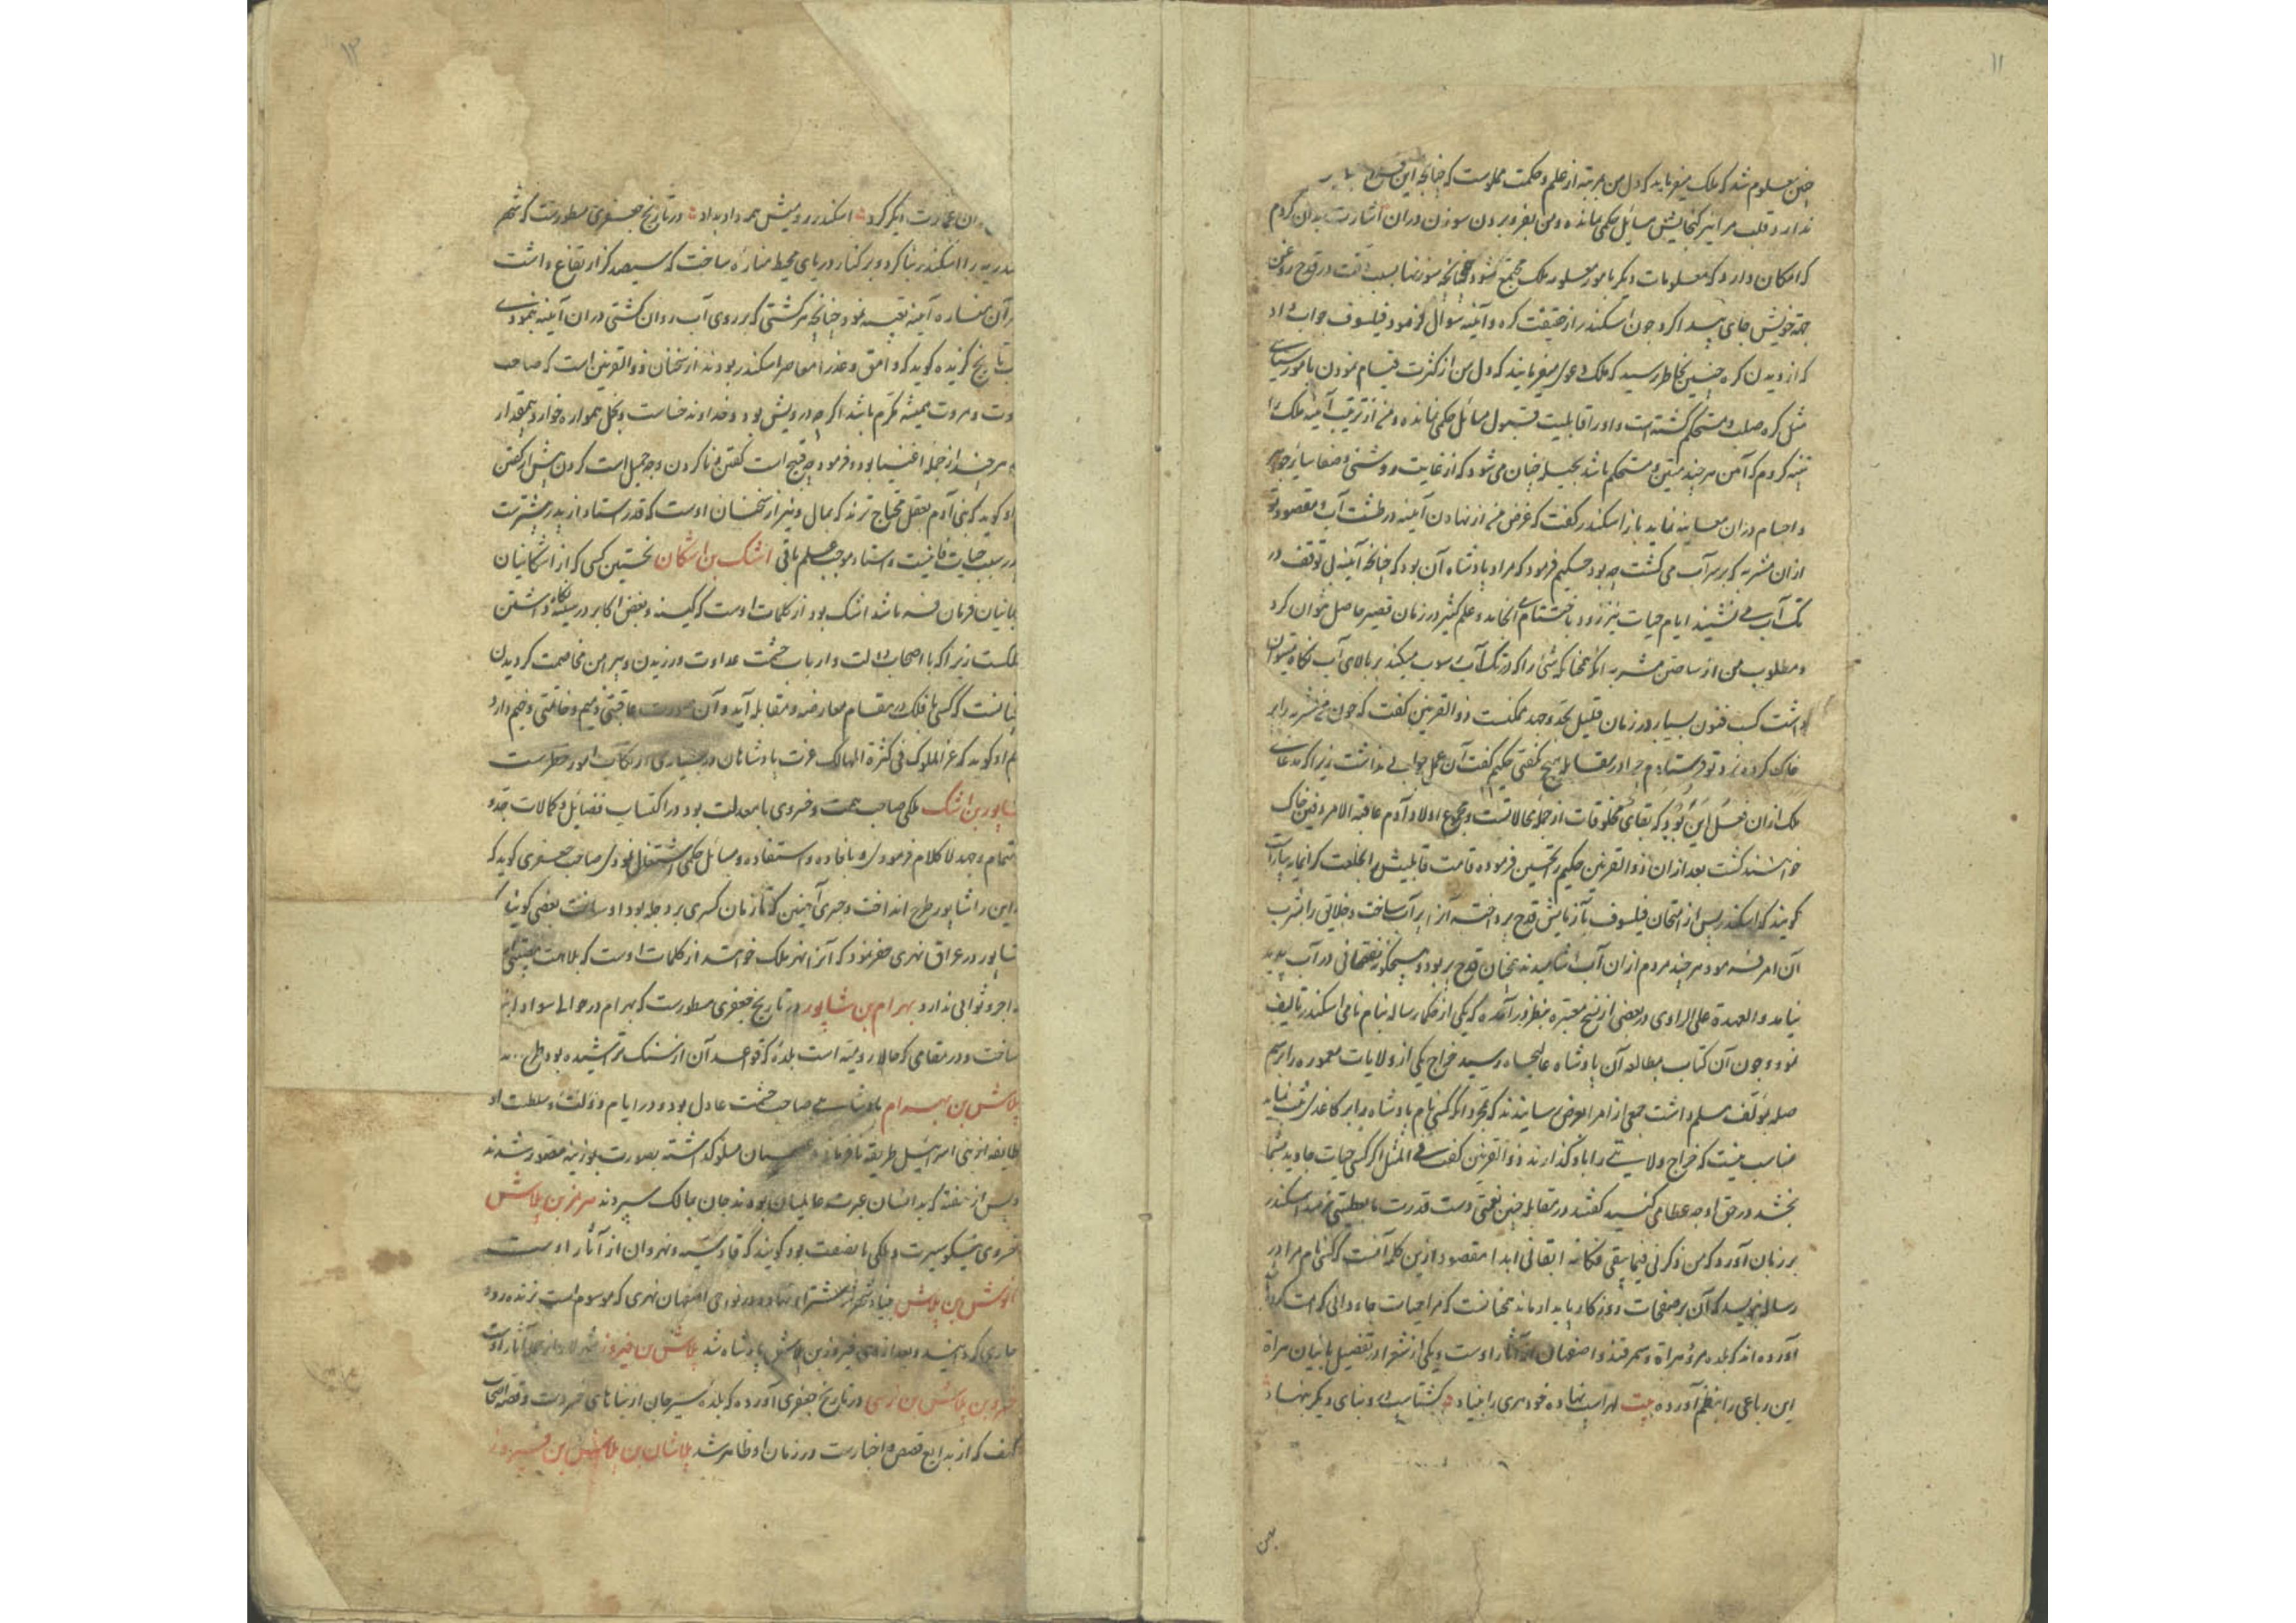 ۱۱
چنین معلوم شد که ملک میفرماید که دل من بمرتبه از علم و حکمت مملوست که چنانچه این قدح
ندارد قلب مرا نیز گنجایش مسایل حکمی نمانده و من بفرو بردن سوزن در آن اشارت بدان کردم
که امکان دارد که معلومات دیگر با مور معلومه ملک مجتمع شود چنانچه سوزنها بسبب دقت در قدح روغن
جهة خویش جای پیدا کرد چون اسکندر از حقیقت کره و آئینه سوال فرمود فیلسوف جواب داد
که از دیدن کره چنین بخاطر رسید که ملک دعوی میفرمایند که دل من از کثرت قیام نمودن بامور سیاسی
مثل کره صلب و مستحکم گشته است و او را قابلیت قبول مسائل حکمی نمانده و من از ترتیب آئینه ملک را
تنبیه کردم که آهن هر چند متین و مستحکم باشد بحیله چنان می شود که از غایت روشنی و صفا سایر جواهر
و اجسام در آن معاینه نماید باز اسکندر گفت که غرض من از نهادن آئینه در طشت آب و مقصود تو
از آن مشربه که بر سر آب می گشت چه بود حکیم فرمود که مراد پادشاه آن بود که چنانچه آئینه بی توقف در
تک آب می نشیند ایام حیات نیز زود باختتام می انجامد و علم کثیر در زمان قصیر حاصل نتوان کرد
و مطلوب من از ساختن مشربه آنکه همچنانکه شئ را که در تک آب رسوب میکند بر بالای آب نگاه میتوان
داشت کسب فنون بسیار در زمان قلیل بجد و جهد ممکنست ذو القرنین گفت که چون من مشربه را پر
خاک کرده نزد تو فرستادم چرا در مقابله هیچ نگفتی حکیم گفت آن عمل جوابی نداشت زیرا که مدعای
ملک از آن فعل این بود که بقای مخلوقات از جمله محالاتست و مجموع اولاد آدم عاقبة الامر دفین خاک
خواهند گشت بعد از آن ذو القرنین حکیم را تحسین فرموده قامت قابلیتش را بخلعت گرانمایه بیاراست
گویند که اسکندر پس از امتحان فیلسوف بآزمایش قدح پرداخته آنرا پر آب ساخت و خلایق را بشرب
آن امر فرمود هر چند مردم از آن آب آشامیدند همچنان قدح پر بود و هیچگونه نقصانی در آب پدید
نیامد و العهدة علی الراوی در بعضی از نسخ معتبره بنظر در آمده که یکی از حکما رساله بنام نامی اسکندر تالیف
نمود و چون آن کتاب بمطالعه آن پادشاه عالیجاه رسید خراج یکی از ولایات معموره را برسم
صله بمؤلف مسلم داشت جمعی از امرا بعرض رسانیدند که بمجرد آنکه کسی نام پادشاه را بر کاغذی ثبت نماید
مناسب نیست که خراج ولایتی را باو گذارند ذو القرنین گفت فی المثل اگر کسی حیات جاوید بشما
بخشد در حق او چه عطا می کنید گفتند در مقابله چنین نعمتی دست قدرت ما بعطیتی نرسد اسکندر
بر زبان آورد که من ذکرنی فیما یبقی فکانه ابقانی ابدا مقصود ازین کلمه آنست که کسی نام مرا در
رساله بنویسد که آن بر صفحات روزگار پایدار ماند همچنانست که مرا حیات جاودانی کرامت کرده
آورده اند که بلده مرو و هراة و سمرقند و اصفهان از آثار اوست و یکی از شعرا در تفصیل بانیان هراة
این رباعی را بنظم آورده بیت لهراسب نهاده خود هری را بنیاد گشتاسب درو بنای دیگر بنهاد
۱۲
عمارت دیگر کرد اسکندر رومیش همه داد بداد در تاریخ جعفری مسطورست که شهر
اسکندریه را اسکندر بنا کرد و بر کنار دریای محیط مناره ساخت که سیصد گز ارتفاع داشت
بر آن مناره آئینه تعبیه نمود چنانچه هر کشتی که بر روی آب روان گشتی در آن آئینه بنمودی
تاریخ گزیده گوید که وامق و عذرا معاصر اسکندر بودند از سخنان ذو القرنین است که صاحب
و مروت همیشه مکرم باشد اگر چه درویش بود و خداوند خساست و بخل همواره خوار و بیمقدار
هر چند از جمله اغنیا بود و فرمود چه قبیح است گفتن و ناکردن و چه جمیل است کردن پیش از گفتن
او گوید که بنی آدم بعقل محتاج ترند که بمال و نیز از سخنان اوست که قدر استاد از پدر بیشترست
پدر سبب حیات فانیست و استاد موجب علم باقی اشک بن اشکان نخستین کسی که از اشکانیان
بجهانیان فرمان فرمای شد اشک بود از کلمات اوست که کینه و بغض اکابر در سینه نگاه داشتن
مهلکست زیرا که با اصحاب دولت و ارباب حشمت عداوت ورزیدن و پیرامن مخاصمت گردیدن
چنانست که کسی با فلک در مقام معارضه و مقابله آید و آن صورت عاقبتی ذمیم و خاتمتی وخیم دارد
هم او گوید که عز الملوک فی کثرة الممالک عزت پادشاهان در بسیاری ارتکاب امور خطرست
شاپور بن اشک ملکی صاحب همت و خسروی با معدلت بود در اکتساب فضایل و کمالات جد و
اهتمام و جهد لا کلام فرمودی و با فاده و استفاده و مسائل حکمی اشتغال نمودی صاحب جعفری گوید که
مداین را شاپور طرح انداخت و جسری آهنین که تا زمان کسری بر دجله بود او ساخت بعضی گویند
شاپور در عراق نهری حفر نمود که آنرا نهر ملک خواند از کلمات اوست که ملامت
اجر و ثوابی ندارد بهرام بن شاپور در تاریخ جعفری مسطورست که بهرام در حوالی سواد
ساخت و در مقامی که حالا رومیه است بلده که قواعد آن از سنگ تراشیده بود طرح
پلاش بن بهرام پادشاهی صاحب حشمت عادل بود و در ایام دولت و سلطنت او
طایفه از بنی اسرائیل طریقه نافرمانی مسلوک داشته بصورت بوزینه مصور شدند
و پس از هفته که بدانسان عبرت عالمیان بودند جان بمالک سپردند هرمز بن پلاش
خسروی نیکو سیرت و ملکی با نصفت بود گویند که قادسیه و نهروان از آثار اوست
انوش بن پلاش بنیاد شهر نهاد و در نواحی اصفهان نهری که موسوم است بزنده رود
جاری گردانید و بعد از وی فیروز بن پلاش پادشاه شد پلاش بن فیروز شهر لار از آثار اوست
خسرو بن پلاش بن نرسی در تاریخ جعفری آورده که بلده سیرجان از بناهای خسروست و قصه اصحاب
کهف که از بدایع قصص و اخبارست در زمان او ظاهر شد پلاشان بن پلاش بن فیروز